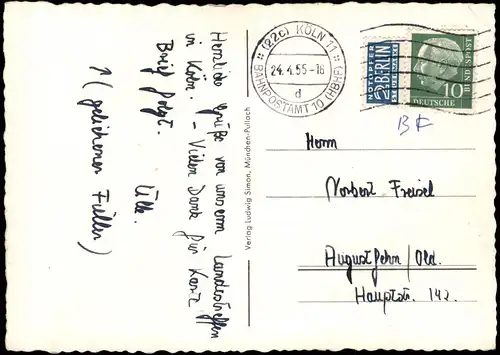 Herzliche Grüße von unserm Landestreffen
in Köln. – Vielen Dank für Karte.
Brief folgt.
Ulle.
↑ (geliehener Füller)
Verlag Ludwig Simon, München-Pullach
(22c) KÖLN 11
24.4.55-16
d
BAHNPOSTAMT 10 (HBHF)
NOTOPFER
2 BERLIN
STEUERMARKE
DEUTSCHE
BUNDESPOST
10
BF
Herrn
Norbert Freisel
Augustfehn/Old.
Hauptstr. 142.